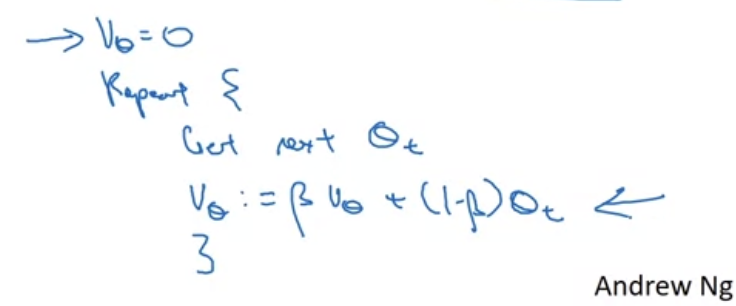 → V_θ = 0
Repeat {
Get next θ_t
V_θ := β V_θ + (1-β) θ_t ←
}
Andrew Ng